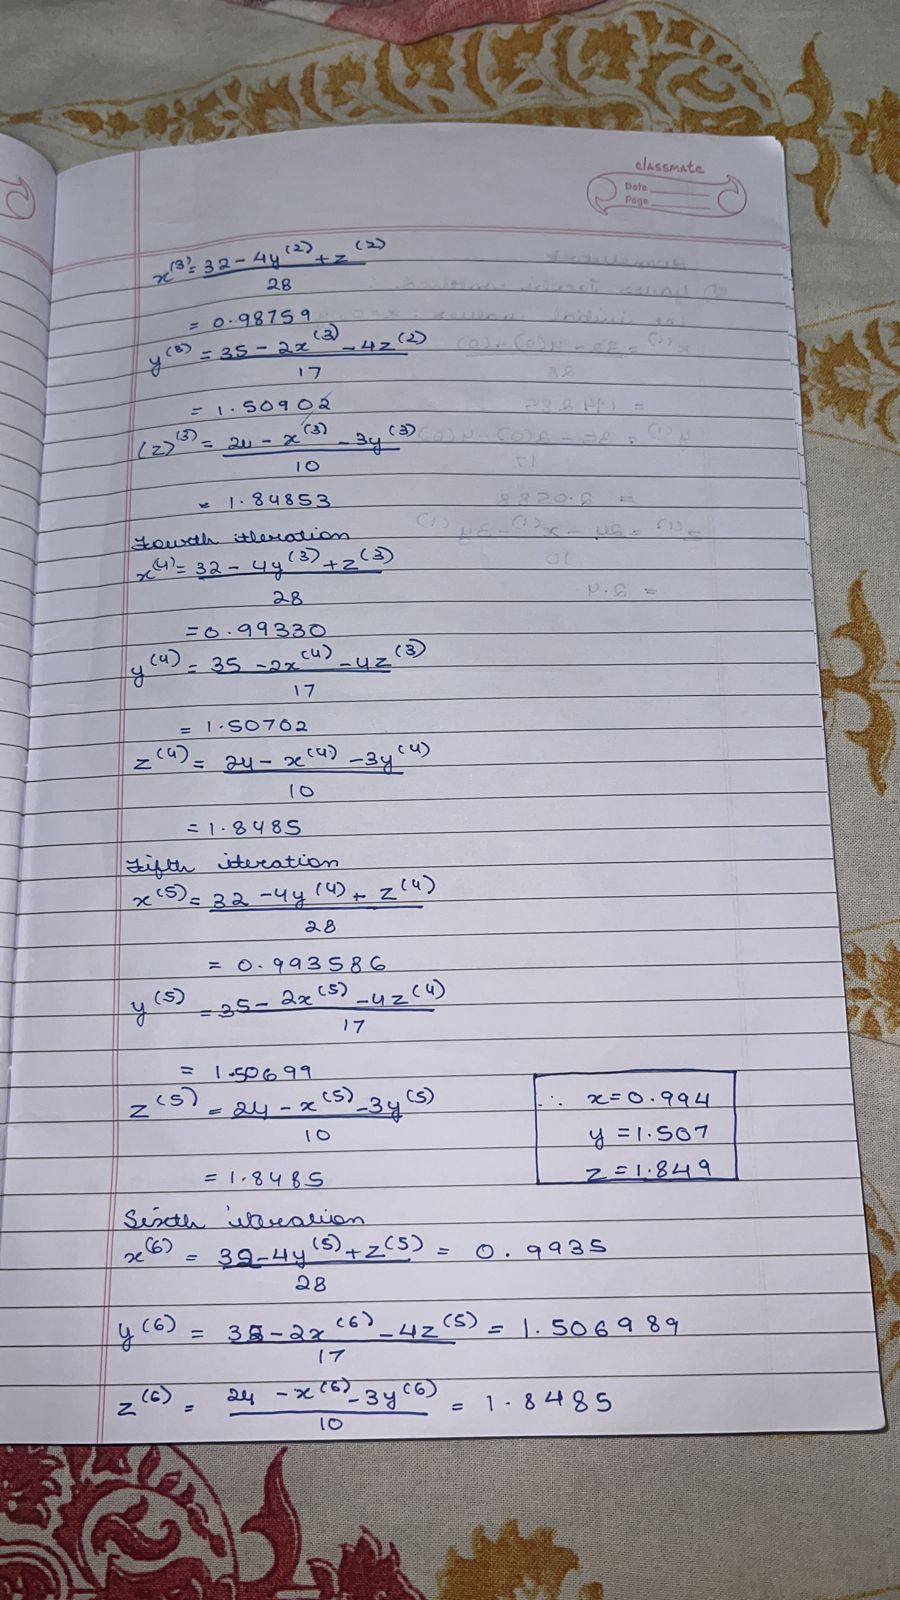 classmate
Date
Page
x⁽³⁾ = 32 - 4y⁽²⁾ + z⁽²⁾
28
= 0.98759
y⁽³⁾ = 35 - 2x⁽³⁾ - 4z⁽²⁾
17
= 1.50902
(z)⁽³⁾ = 24 - x⁽³⁾ - 3y⁽³⁾
10
= 1.84853
Fourth iteration
x⁽⁴⁾ = 32 - 4y⁽³⁾ + z⁽³⁾
28
= 0.99330
y⁽⁴⁾ = 35 - 2x⁽⁴⁾ - 4z⁽³⁾
17
= 1.50702
z⁽⁴⁾ = 24 - x⁽⁴⁾ - 3y⁽⁴⁾
10
= 1.8485
Fifth iteration
x⁽⁵⁾ = 32 - 4y⁽⁴⁾ + z⁽⁴⁾
28
= 0.993586
y⁽⁵⁾ = 35 - 2x⁽⁵⁾ - 4z⁽⁴⁾
17
= 1.50699
z⁽⁵⁾ = 24 - x⁽⁵⁾ - 3y⁽⁵⁾
10
= 1.8485
∴ x = 0.994
y = 1.507
z = 1.849
Sixth iteration
x⁽⁶⁾ = 32 - 4y⁽⁵⁾ + z⁽⁵⁾ = 0.9935
28
y⁽⁶⁾ = 35 - 2x⁽⁶⁾ - 4z⁽⁵⁾ = 1.506989
17
z⁽⁶⁾ = 24 - x⁽⁶⁾ - 3y⁽⁶⁾ = 1.8485
10